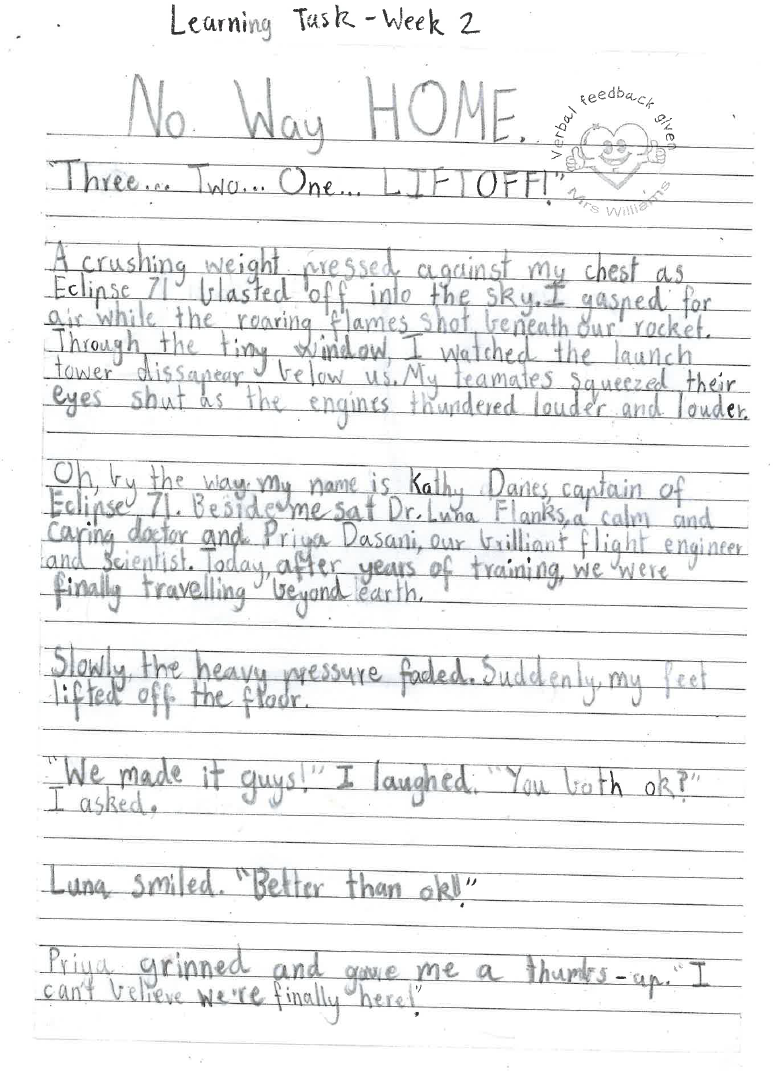 Learning Task - Week 2
No Way HOME.
Verbal feedback given
Mrs Williams
"Three... Two... One... LIFTOFF!"
A crushing weight pressed against my chest as
Eclipse 71 blasted off into the sky. I gasped for
air while the roaring flames shot beneath our rocket.
Through the tiny window, I watched the launch
tower dissapear below us. My teamates squeezed their
eyes shut as the engines thundered louder and louder.
Oh, by the way, my name is Kathy Danes, captain of
Eclipse 71. Beside me sat Dr. Luna Flanks, a calm and
caring doctor and Priya Dasani, our brilliant flight engineer
and scientist. Today, after years of training, we were
finally travelling beyond earth.
Slowly, the heavy pressure faded. Suddenly, my feet
lifted off the floor.
"We made it guys!" I laughed. "You both ok?"
I asked.
Luna smiled. "Better than ok!!"
Priya grinned and gave me a thumbs-up. "I
can't believe we're finally here!"